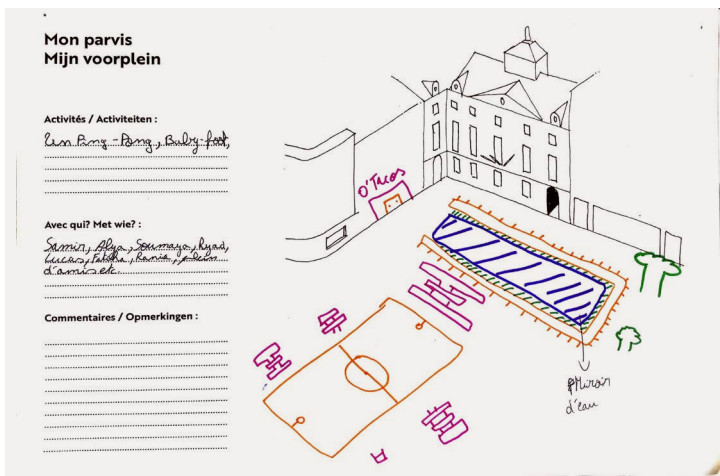 Mon parvis
Mijn voorplein
Activités / Activiteiten :
Un Ping-Pong, Baby-foot,
Avec qui? Met wie? :
Samir, Alya, Soumaya, Ryad,
Lucas, Fatiha, Rania, plein
d'amis etc.
Commentaires / Opmerkingen :
O'Tacos
Miroir
d'eau